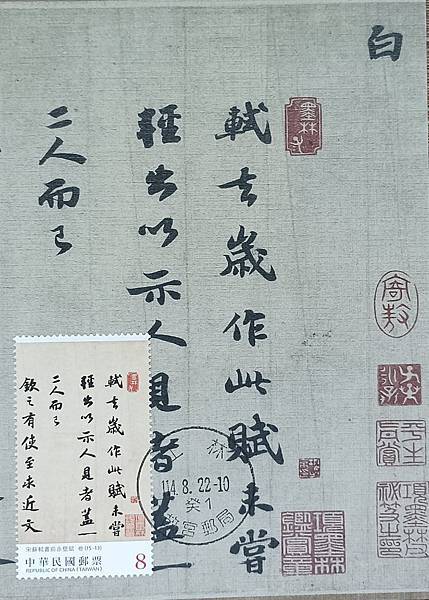 白
軾去歲作此賦未嘗
輕出以示人見者蓋一
二人而已
寄敖
項墨林鑑賞章
軾去歲作此賦未嘗
輕出以示人見者蓋一
二人而已
欽之有使至求近文
宋蘇軾書前赤壁賦 卷(15-13)
中華民國郵票
REPUBLIC OF CHINA (TAIWAN)
8
114.8.22-10
癸1
故宮郵局